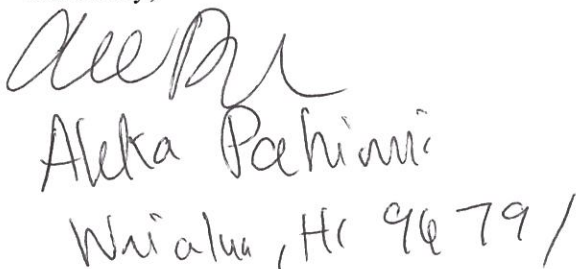 Aleka Pahinui
Waialua, HI 96791